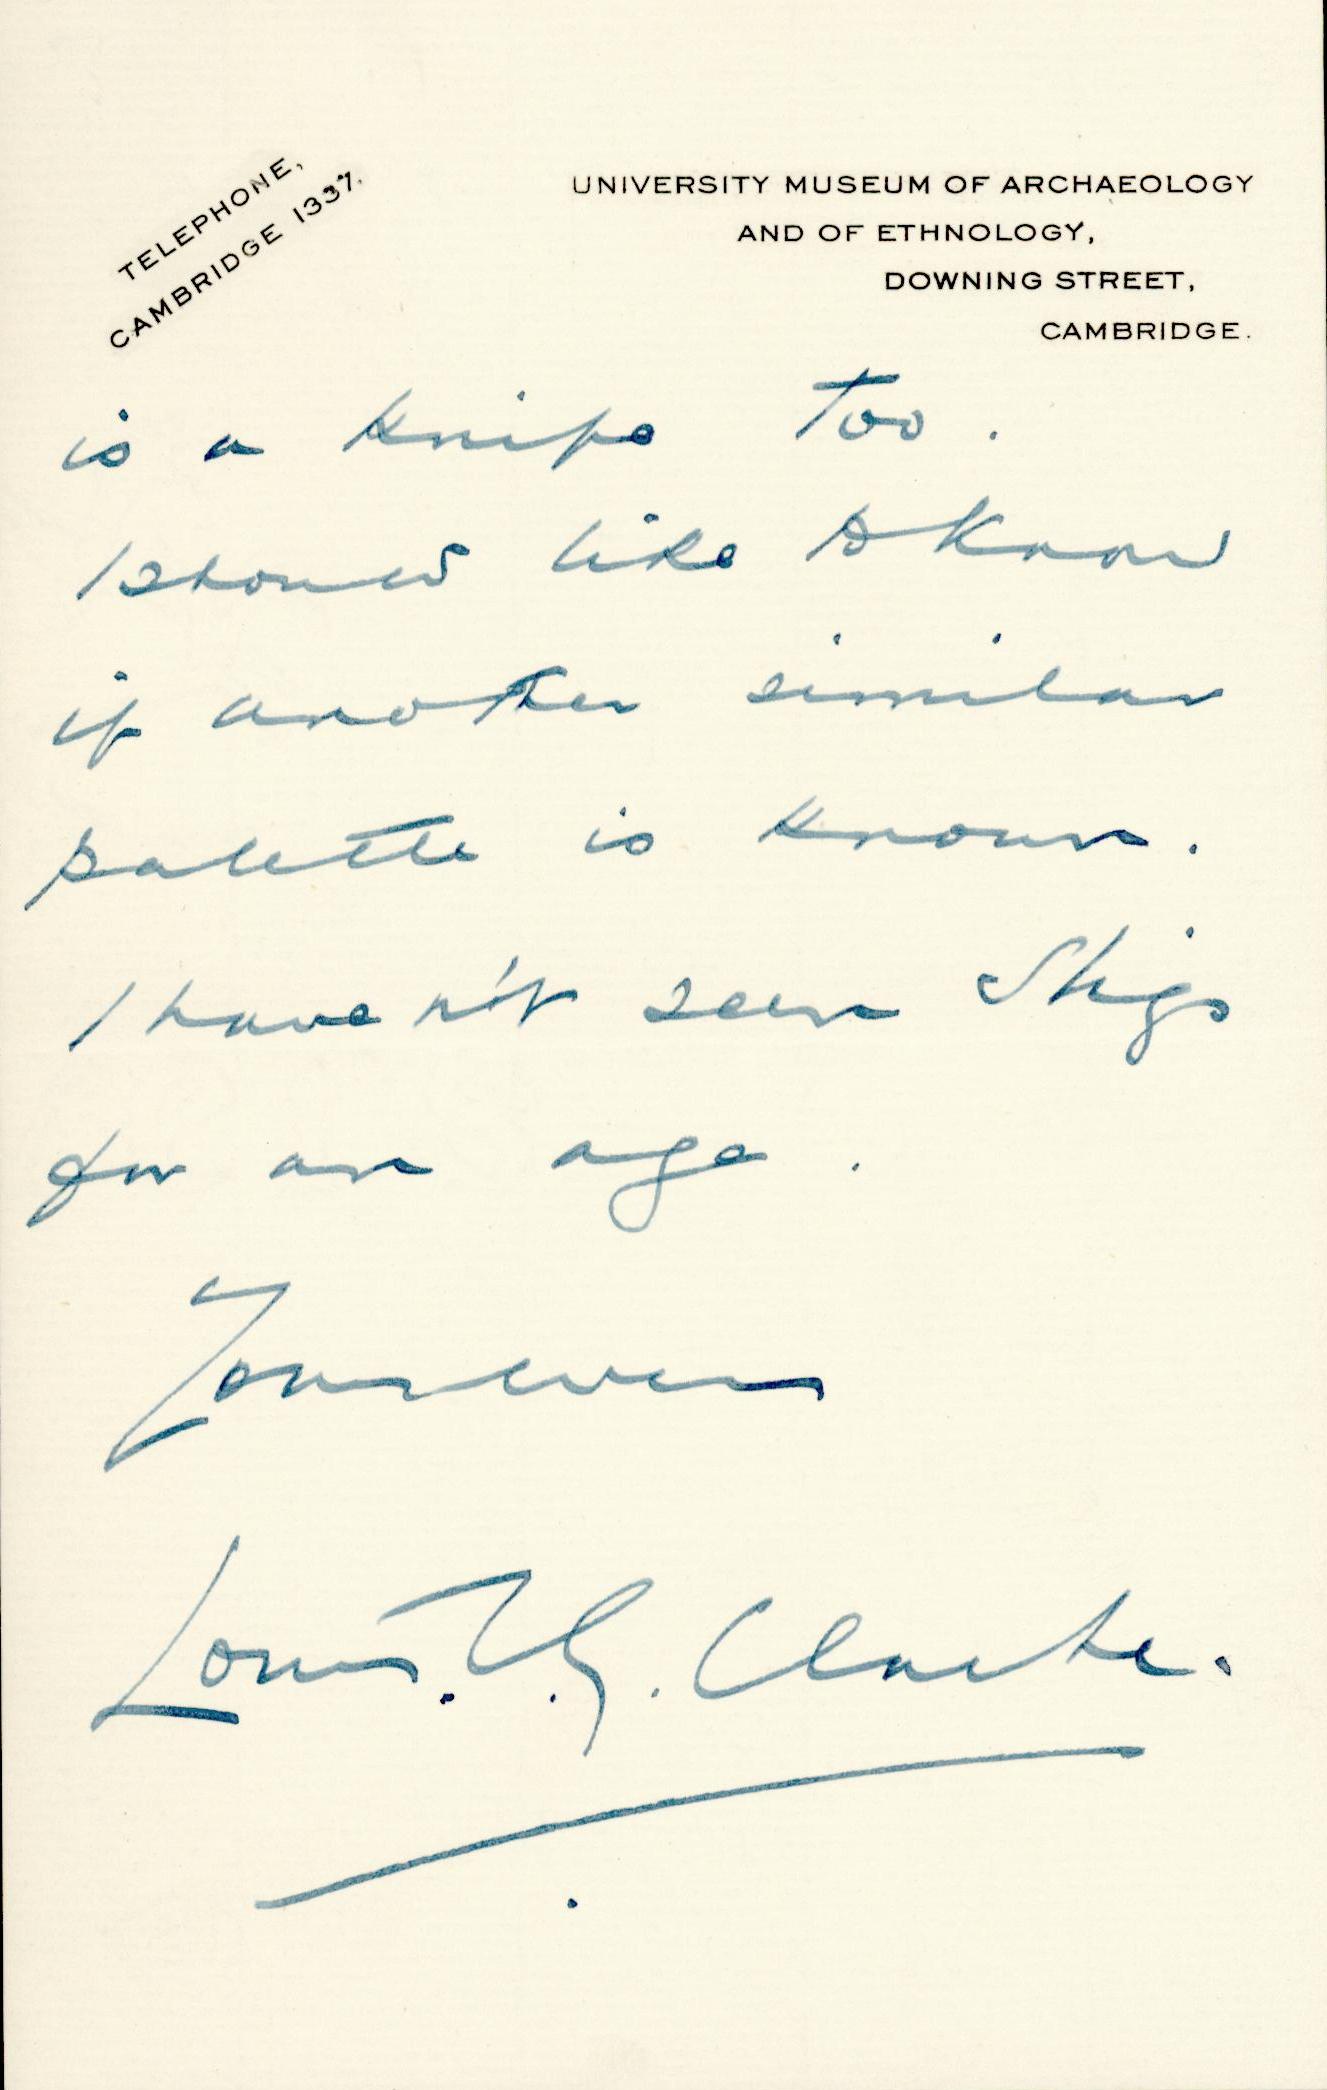 TELEPHONE,
CAMBRIDGE 1337.
UNIVERSITY MUSEUM OF ARCHAEOLOGY
AND OF ETHNOLOGY,
DOWNING STREET,
CAMBRIDGE.
is a knife too.
I should like to know
if another similar
palette is known.
I haven't seen Sligs
for an age.
Yours ever
Louis. C. G. Clarke.